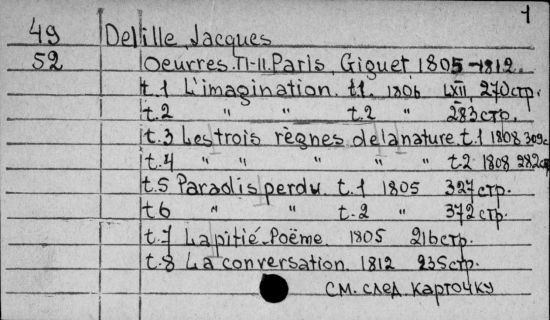 1
49 Delille, Jacques
52 Oeuvres. T.1-11. Paris, Giguet 1805-1812.
t.1 L'imagination. t.1. 1806 LXII, 270стр.
t.2 " " t.2 " 283стр.
t.3 Les trois règnes de la nature. t.1 1808 309с
t.4 " " " " " t.2 1808 282ср
t.5 Paradis perdu. t.1 1805 327стр.
t.6 " " t.2 " 372стр.
t.7 La pitié. Poëme. 1805 216стр.
t.8 La conversation. 1812 235стр.
см. след. карточку